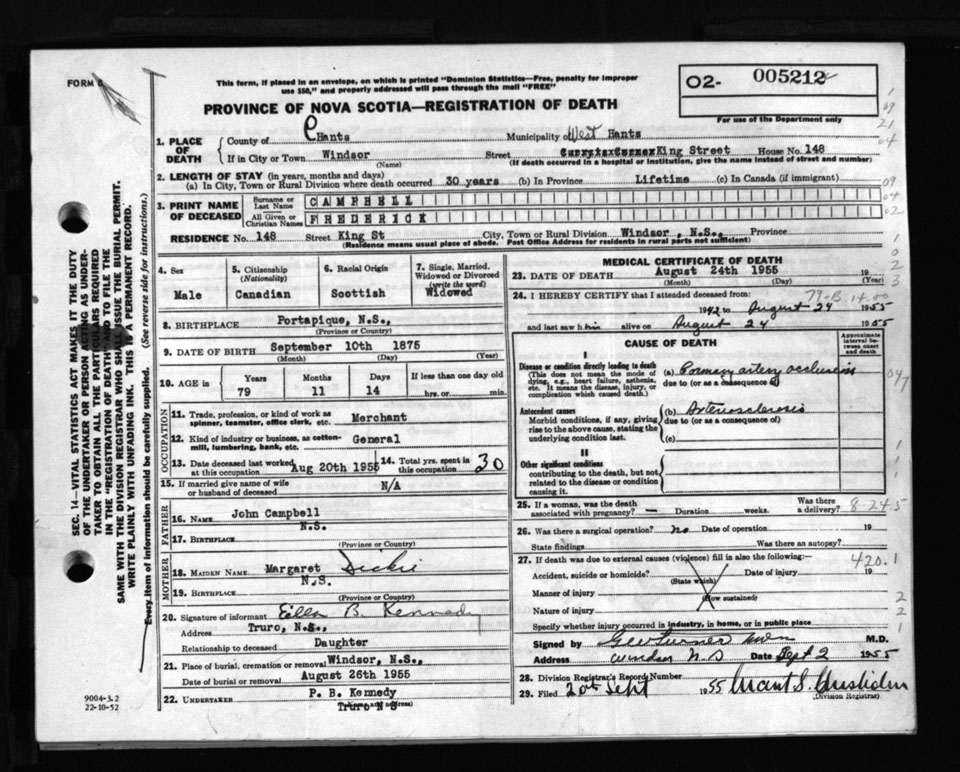 FORM
This form, if placed in an envelope, on which is printed "Dominion Statistics—Free, penalty for improper
use $50," and properly addressed will pass through the mail "FREE"
O2- 005212
For use of the Department only
PROVINCE OF NOVA SCOTIA—REGISTRATION OF DEATH
1. PLACE OF DEATH
County of Hants Municipality of West Hants
If in City or Town Windsor Street King Street House No. 148
(Name) (If death occurred in a hospital or institution, give the name instead of street and number)
2. LENGTH OF STAY (in years, months and days)
(a) In City, Town or Rural Division where death occurred 30 years (b) In Province Lifetime (c) In Canada (if immigrant)
3. PRINT NAME OF DECEASED
Surname or Last Name CAMPBELL
All Given or Christian Names FREDERICK
RESIDENCE No. 148 Street King St City, Town or Rural Division Windsor, N.S., Province
(Residence means usual place of abode. Post Office Address for residents in rural parts not sufficient)
4. Sex
Male
5. Citizenship (Nationality)
Canadian
6. Racial Origin
Scottish
7. Single, Married, Widowed or Divorced (write the word)
Widowed
8. BIRTHPLACE Portapique, N.S.,
(Province or Country)
9. DATE OF BIRTH September 10th 1875
(Month) (Day) (Year)
10. AGE in Years Months Days If less than one day old
79 11 14 hrs. or min.
OCCUPATION
11. Trade, profession, or kind of work as spinner, teamster, office clerk, etc. Merchant
12. Kind of industry or business, as cotton-mill, lumbering, bank, etc. General
13. Date deceased last worked at this occupation Aug 20th 1955
14. Total yrs. spent in this occupation 30
15. If married give name of wife or husband of deceased N/A
FATHER
16. NAME John Campbell
17. BIRTHPLACE N.S.
(Province or Country)
MOTHER
18. MAIDEN NAME Margaret Dickie
19. BIRTHPLACE N.S.
(Province or Country)
20. Signature of informant Ella B. Kennedy
Address Truro, N.S.,
Relationship to deceased Daughter
21. Place of burial, cremation or removal Windsor, N.S.,
Date of burial or removal August 26th 1955
22. UNDERTAKER P. B. Kennedy
Truro N S
MEDICAL CERTIFICATE OF DEATH
23. DATE OF DEATH August 24th 1955 19
(Month) (Day) (Year)
24. I HEREBY CERTIFY that I attended deceased from:
1942 to August 24 1955
and last saw him alive on August 24 1955
CAUSE OF DEATH
Approximate interval between onset and death
I
Disease or condition directly leading to death
(This does not mean the mode of dying, e.g., heart failure, asthenia, etc. It means the disease, injury, or complication which caused death.)
(a) Coronary artery occlusion
due to (or as a consequence of)
Antecedent causes
Morbid conditions, if any, giving rise to the above cause, stating the underlying condition last.
(b) Arteriosclerosis
due to (or as a consequence of)
(c)
II
Other significant conditions
contributing to the death, but not related to the disease or condition causing it.
25. If a woman, was the death associated with pregnancy? — Duration weeks. Was there a delivery? 8-24-5
26. Was there a surgical operation? no Date of operation 19
State findings Was there an autopsy?
27. If death was due to external causes (violence) fill in also the following:— 420.1
Accident, suicide or homicide? Date of injury 19
(State which)
Manner of injury
(How sustained)
Nature of injury
Specify whether injury occurred in industry, in home, or in public place
Signed by Turner M.D.
Address Windsor N.S Date Sept 2 1955
28. Division Registrar's Record Number
29. Filed 20th Sept 1955
(Division Registrar)
SEC. 14—VITAL STATISTICS ACT MAKES IT THE DUTY
OF THE UNDERTAKER OR PERSON ACTING AS UNDER-
TAKER TO OBTAIN ALL THE PARTICULARS REQUIRED
IN THE "REGISTRATION OF DEATH" AND TO FILE THE
SAME WITH THE DIVISION REGISTRAR WHO SHALL ISSUE THE BURIAL PERMIT.
WRITE PLAINLY WITH UNFADING INK. THIS IS A PERMANENT RECORD.
Every item of information should be carefully supplied. (See reverse side for instructions.)
9004-3.2
22-10-52